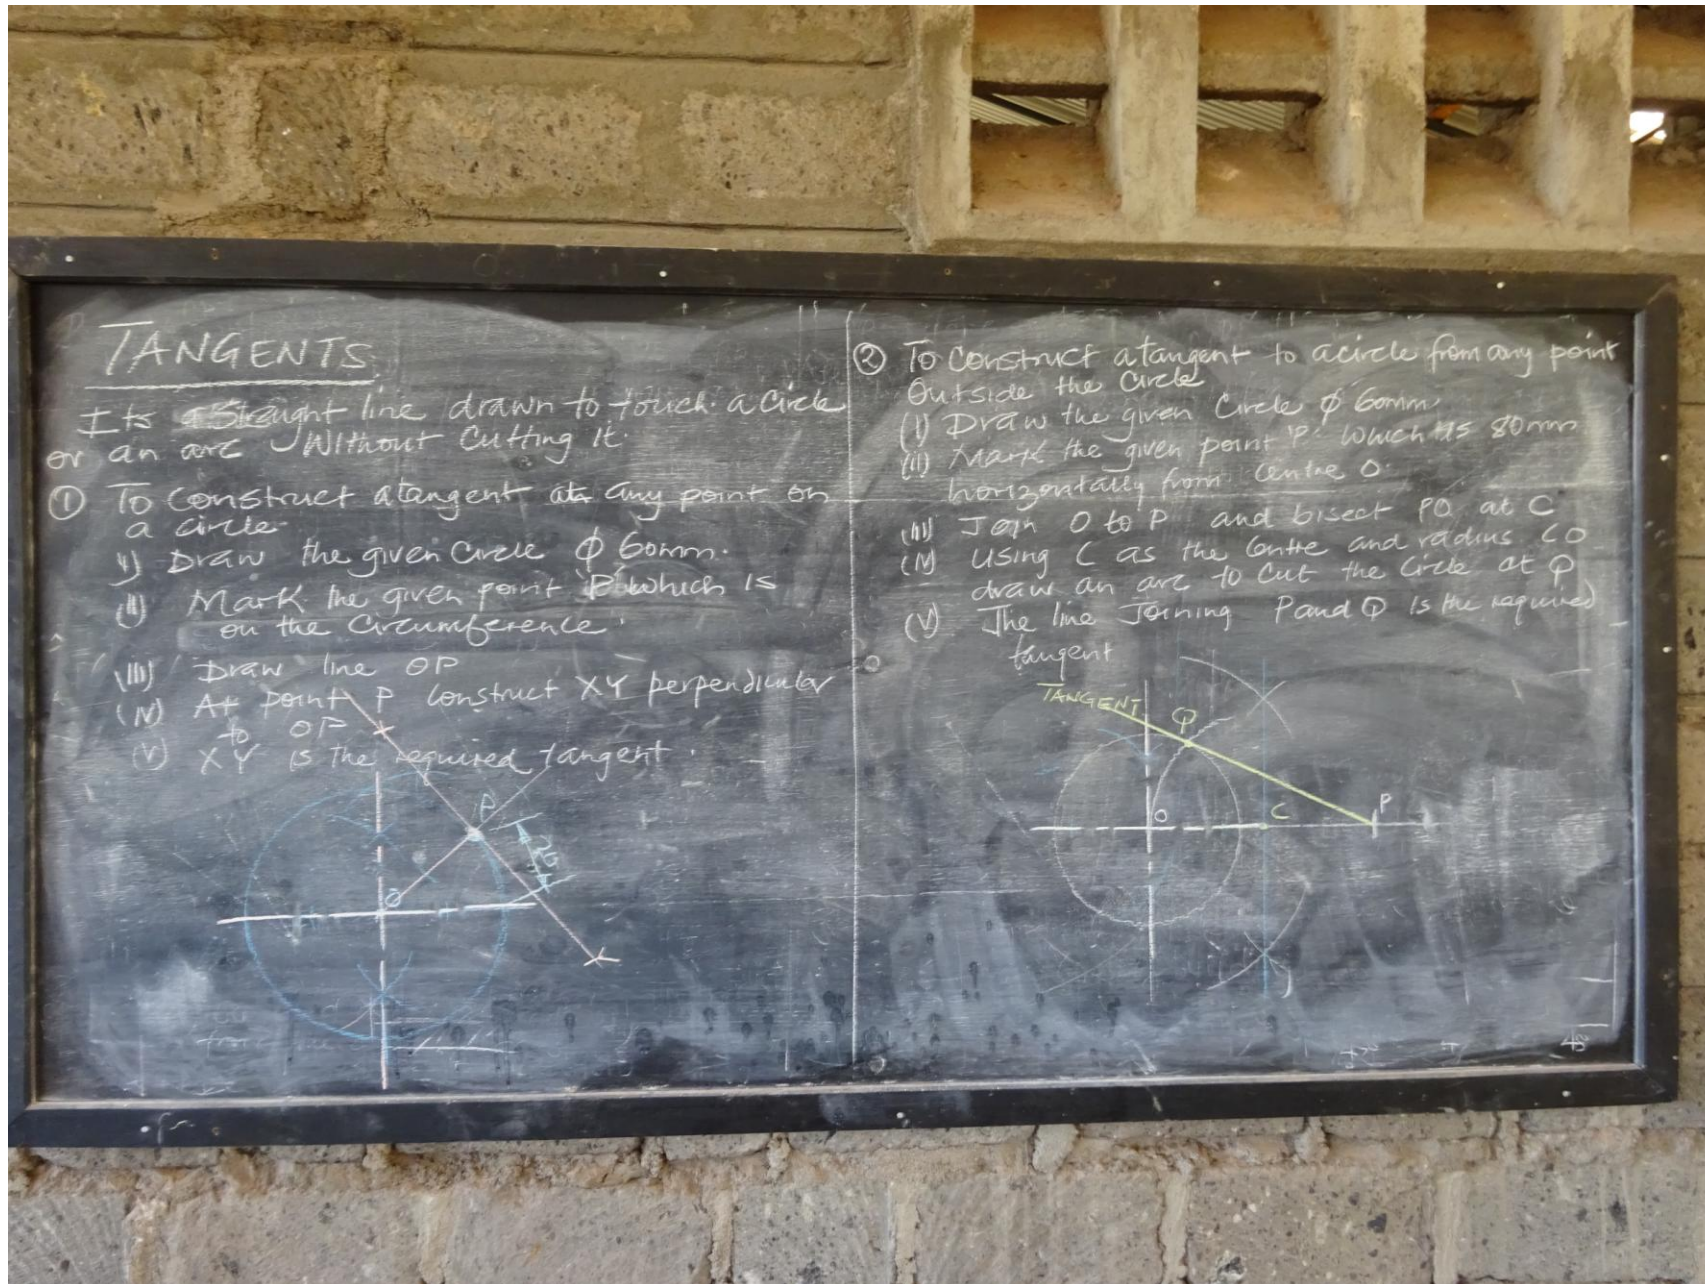 TANGENTS
Its a Straight line drawn to touch a Circle
or an arc Without Cutting it.
① To Construct a tangent at any point on
a circle.
i) Draw the given Circle ϕ 60mm.
(ii) Mark the given point P which is
on the Circumference.
(iii) Draw line OP
(iv) At point P construct XY perpendicular
to OP
(v) XY is the required tangent.
P
O
② To Construct a tangent to a circle from any point
Outside the Circle
(i) Draw the given Circle ϕ 60mm
(ii) Mark the given point 'P' which is 80mm
horizontally from centre O.
(iii) Join O to P and bisect PO at C
(iv) Using C as the Centre and radius CO
draw an arc to Cut the Circle at Q
(v) The line Joining P and Q is the required
tangent
TANGENT
Q
O
C
P